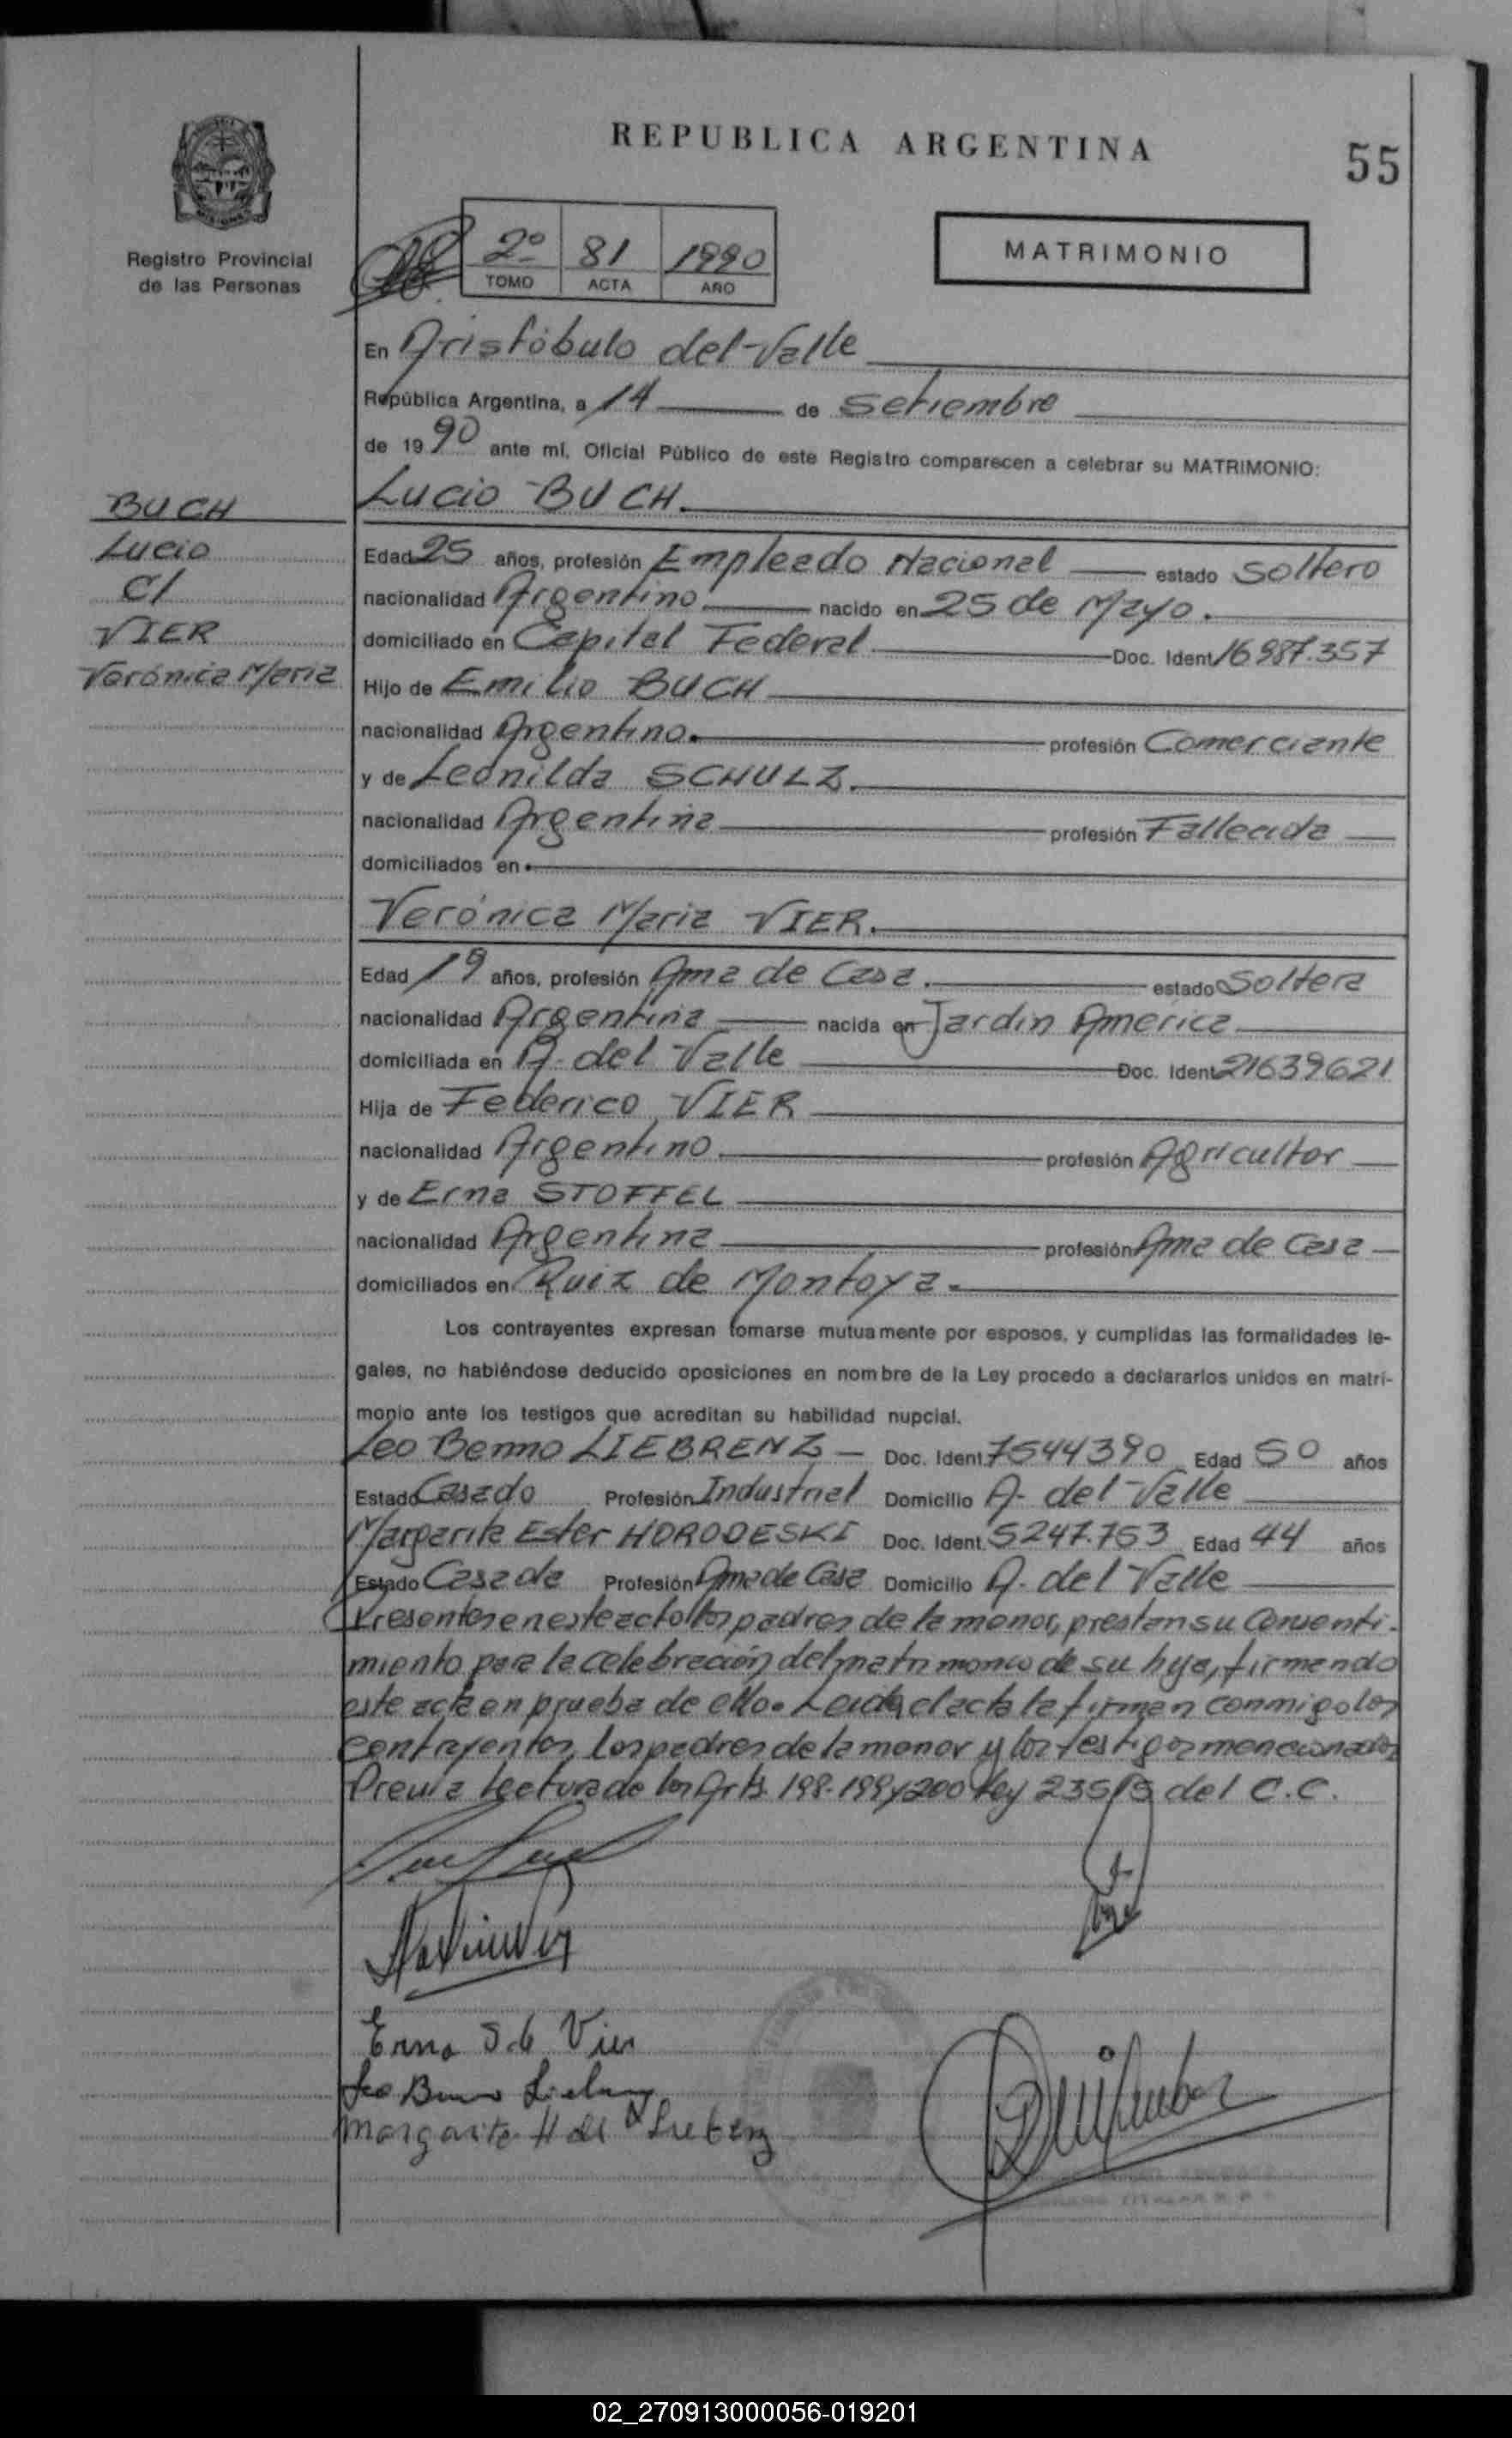 REPUBLICA ARGENTINA
55
Registro Provincial
de las Personas
2º 81 1990
TOMO ACTA AÑO
MATRIMONIO
En Aristóbulo del Valle
República Argentina, a 14 de Setiembre
de 1990 ante mí, Oficial Público de este Registro comparecen a celebrar su MATRIMONIO:
BUCH
Lucio
C/
VIER
Verónica Maria
Lucio BUCH.
Edad 25 años, profesión Empleado Nacional estado Soltero
nacionalidad Argentino nacido en 25 de Mayo.
domiciliado en Capital Federal Doc. Ident. 16987.357
Hijo de Emilio BUCH
nacionalidad Argentino. profesión Comerciante
y de Leonilda SCHULZ.
nacionalidad Argentina profesión Fallecida
domiciliados en
Verónica Maria VIER.
Edad 19 años, profesión Ama de Casa. estado Soltera
nacionalidad Argentina nacida en Jardin America
domiciliada en A. del Valle Doc. Ident. 21639621
Hija de Federico VIER
nacionalidad Argentino profesión Agricultor
y de Erna STOFFEL
nacionalidad Argentina profesión Ama de Casa
domiciliados en Ruiz de Montoya.
Los contrayentes expresan tomarse mutuamente por esposos, y cumplidas las formalidades le-
gales, no habiéndose deducido oposiciones en nombre de la Ley procedo a declararlos unidos en matri-
monio ante los testigos que acreditan su habilidad nupcial.
Leo Benno LIEBRENZ Doc. Ident. 7544390 Edad 50 años
Estado Casado Profesión Industrial Domicilio A. del Valle
Margarita Ester HORODESKI Doc. Ident. 5247.753 Edad 44 años
Estado Casada Profesión Ama de Casa Domicilio A. del Valle
Presentes en este acto los padres de la menor, prestan su consenti-
miento para la celebración del matrimonio de su hija, firmando
este acta en prueba de ello. Leida el acta la firman conmigo los
contrayentes, los padres de la menor y los testigos mencionados
Previa lectura de los Arts. 198-199 y 200 Ley 23515 del C.C.
Erna S. de Vier
Leo Benno Liebrenz
Margarita H de Liebrenz
02_270913000056-019201